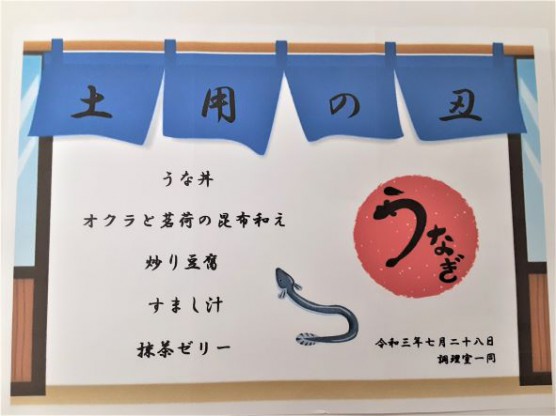 土用の丑
うな丼
オクラと茗荷の昆布和え
炒り豆腐
すまし汁
抹茶ゼリー
うなぎ
令和三年七月二十八日
調理室一同